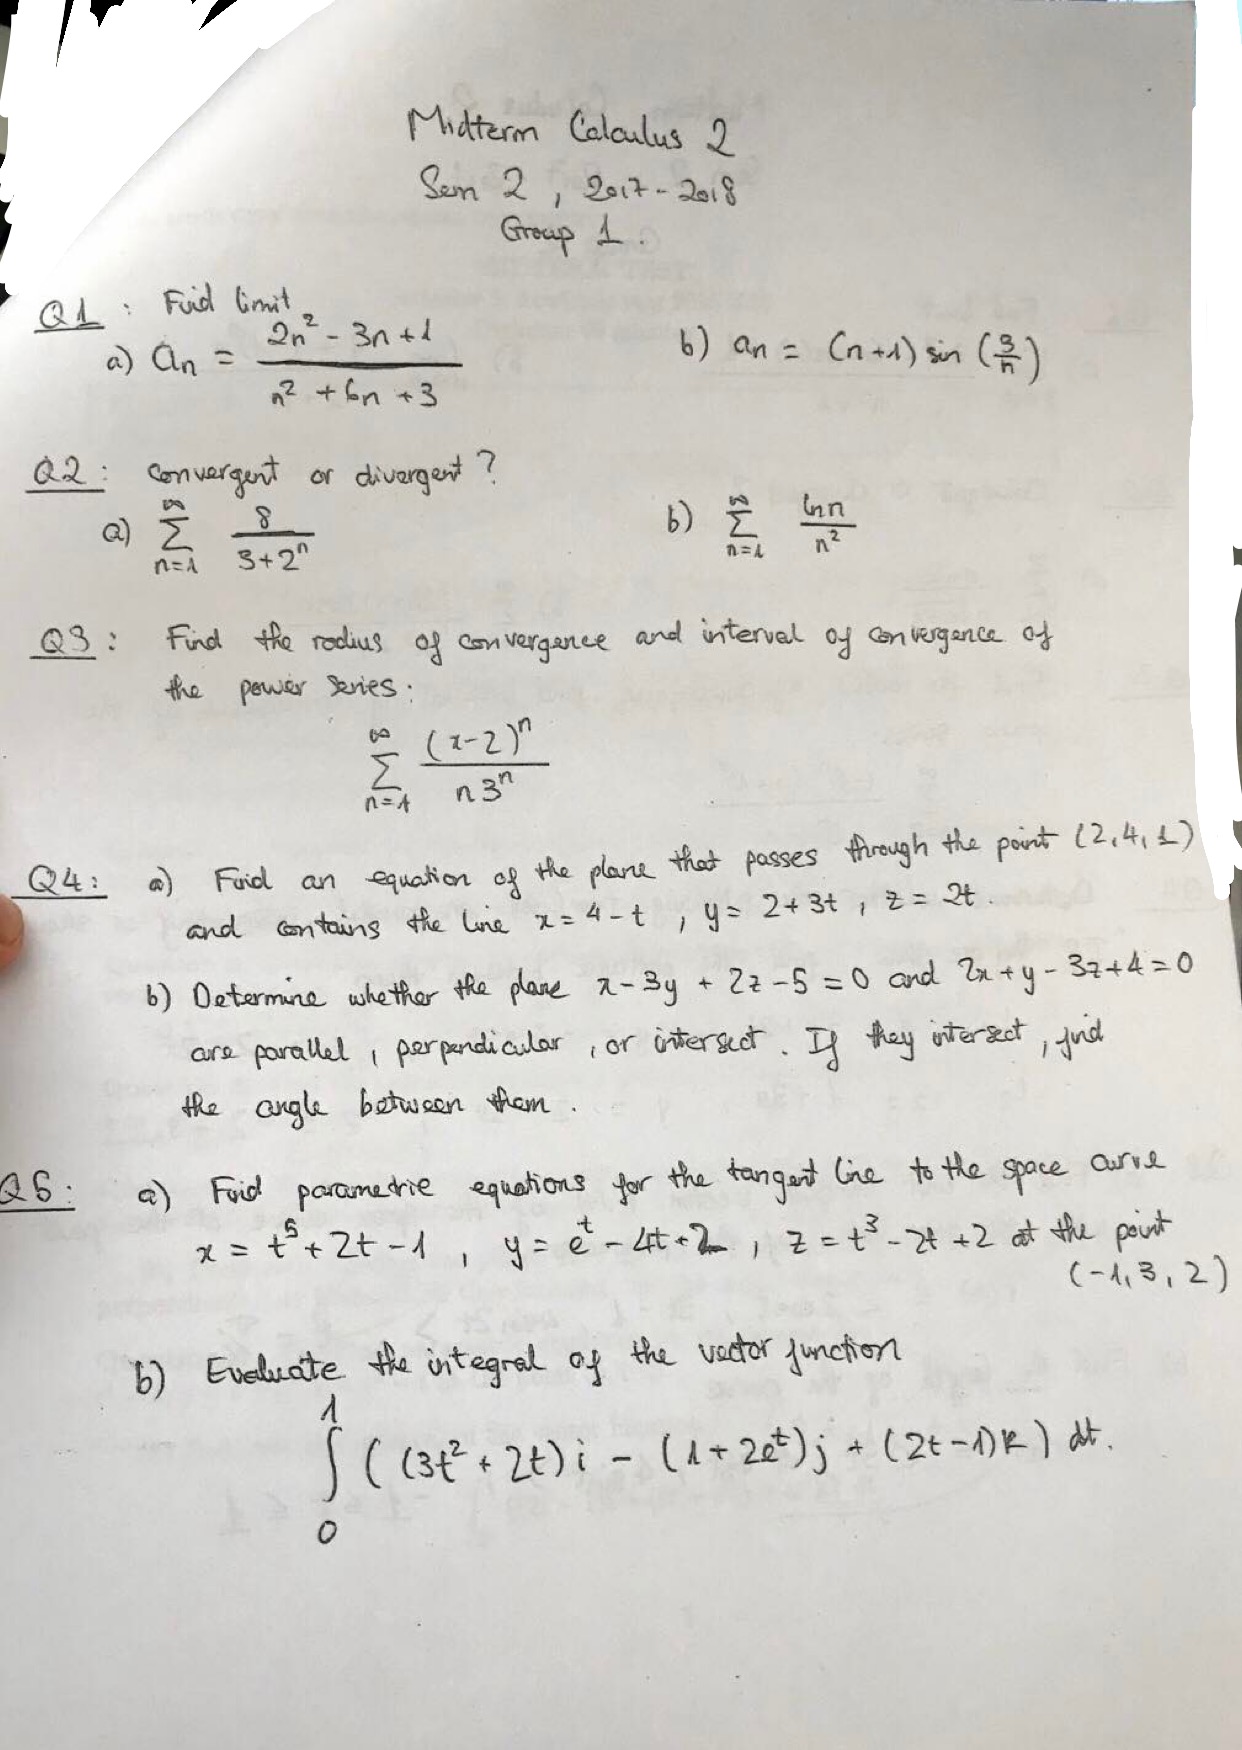 Midterm Calculus 2
Sem 2, 2017-2018
Group 1.
Q1: Find limit
a) an = (2n² - 3n + 1) / (n² + 6n + 3)    b) an = (n+1) sin (3/n)
Q2: Convergent or divergent?
a) ∑_{n=1}^{∞} 8 / (3 + 2^n)    b) ∑_{n=1}^{∞} ln n / n²
Q3: Find the radius of convergence and interval of convergence of
the power series:
∑_{n=1}^{∞} (x-2)^n / (n 3^n)
Q4: a) Find an equation of the plane that passes through the point (2,4,1)
and contains the line x = 4 - t, y = 2 + 3t, z = 2t.
b) Determine whether the plane x - 3y + 2z - 5 = 0 and 2x + y - 3z + 4 = 0
are parallel, perpendicular, or intersect. If they intersect, find
the angle between them.
Q5: a) Find parametric equations for the tangent line to the space curve
x = t⁵ + 2t - 1, y = e^t - 4t + 2, z = t³ - 2t + 2 at the point
(-1, 3, 2)
b) Evaluate the integral of the vector function
∫_0^1 ((3t² + 2t)i - (1 + 2e^t)j + (2t - 1)k) dt.